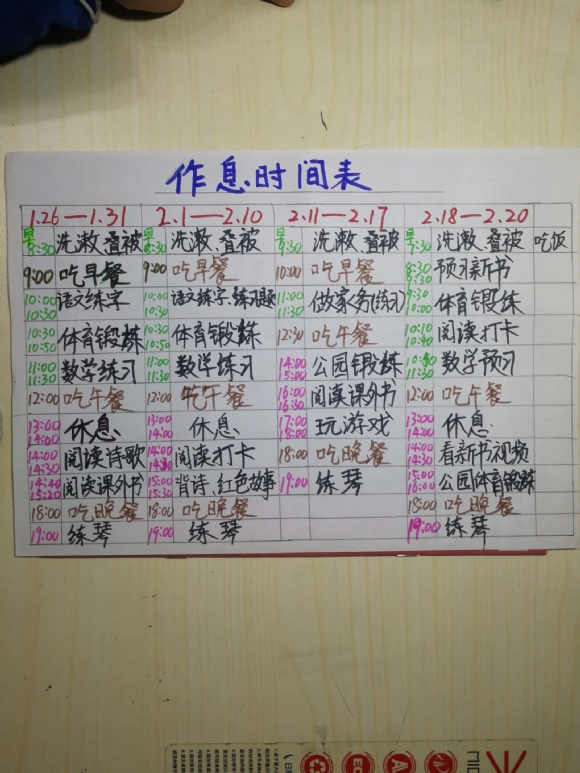 作息时间表
1.26—1.31 2.1—2.10 2.11—2.17 2.18—2.20
早8:30 洗漱、叠被 早8:30 洗漱、叠被 早9:30 洗漱、叠被 早7:30 洗漱、叠被 吃饭
9:00 吃早餐 9:00 吃早餐 10:00 吃早餐 8:30 预习新书
10:00 10:30 语文练字 10:00 10:30 语文练字、练习题 11:00 11:30 做家务(练习) 9:30 10:00 体育锻练
10:30 10:50 体育锻炼 10:30 10:50 体育锻炼 12:30 吃午餐 10:10 10:40 阅读打卡
11:00 11:30 数学练习 11:00 11:30 数学练习 14:00 15:00 公园锻炼 11:30 数学预习
12:00 吃午餐 12:00 吃午餐 16:00 16:30 阅读课外书 12:00 吃午餐
13:00 14:00 休息 13:00 14:00 休息 17:00 18:00 玩游戏 13:00 14:00 休息
14:00 14:30 阅读诗歌 14:00 14:30 阅读打卡 18:00 吃晚餐 14:00 14:30 看新书视频
14:40 15:20 阅读课外书 15:00 15:30 背诗、红色故事 19:00 练琴 15:00 16:00 公园体育锻炼
18:00 吃晚餐 18:00 吃晚餐 18:00 吃晚餐
19:00 练琴 19:00 练琴 19:00 练琴